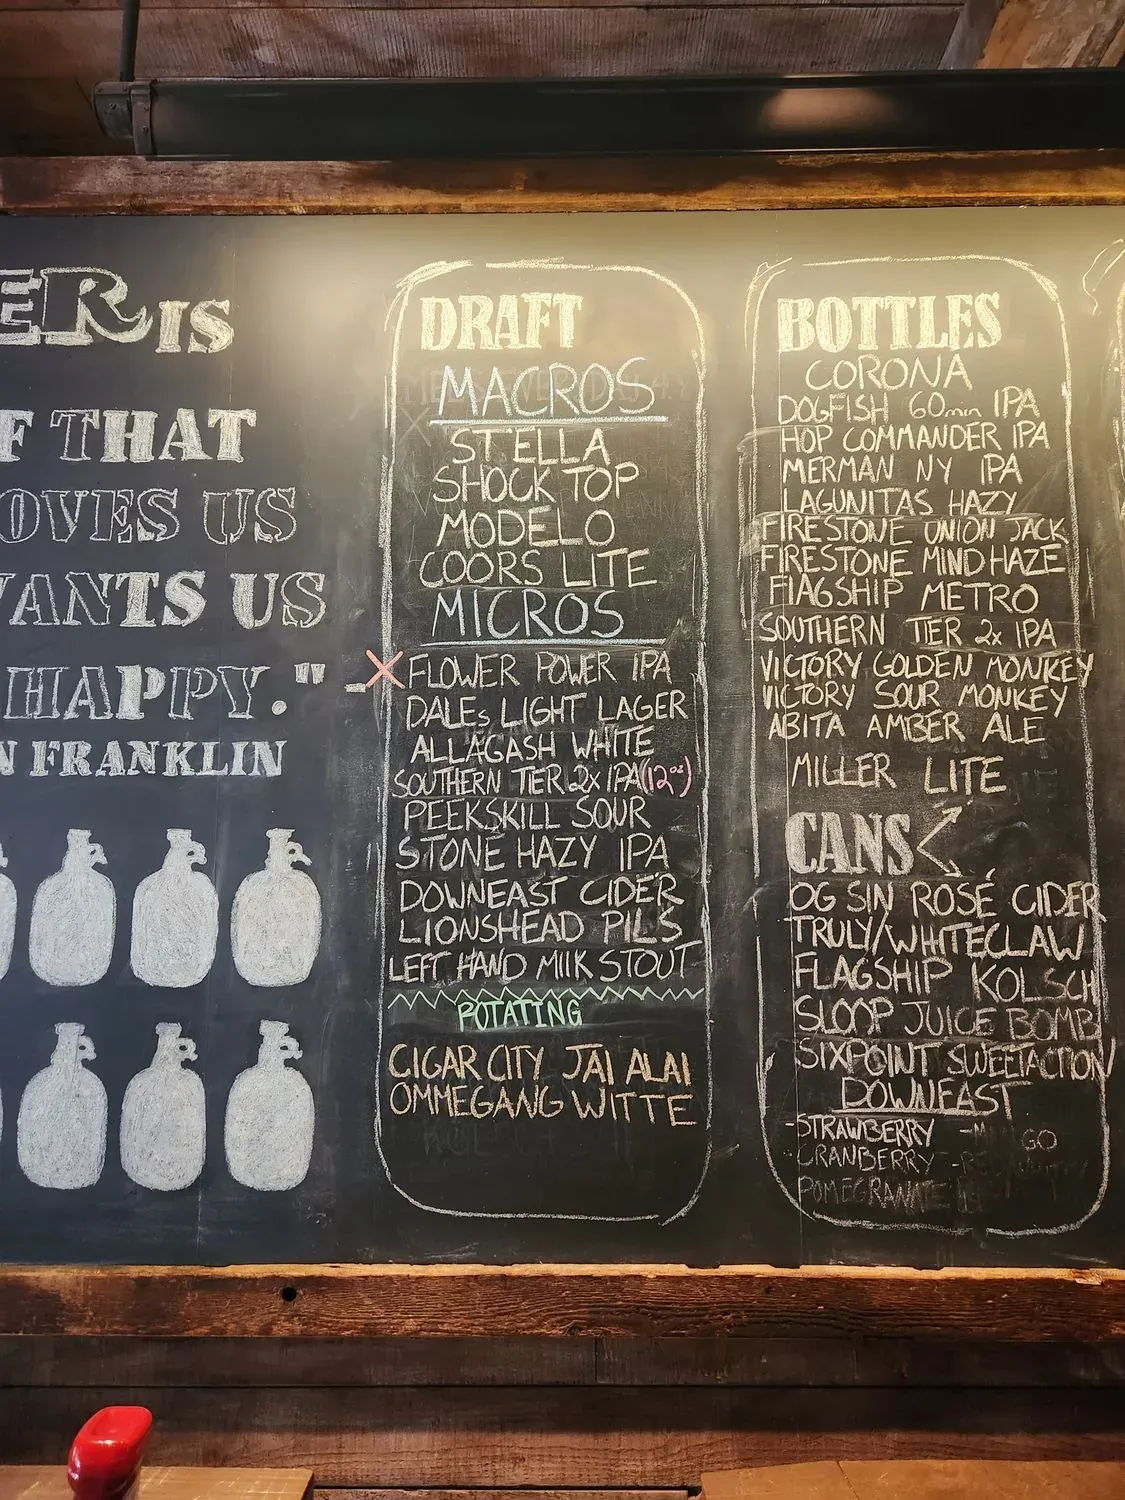 ER IS
F THAT
OVES US
WANTS US
HAPPY."
N FRANKLIN
DRAFT
MACROS
STELLA
SHOCK TOP
MODELO
COORS LITE
MICROS
X FLOWER POWER IPA
DALEs LIGHT LAGER
ALLAGASH WHITE
SOUTHERN TIER 2x IPA (12oz)
PEEKSKILL SOUR
STONE HAZY IPA
DOWNEAST CIDER
LIONSHEAD PILS
LEFT HAND MIlK STOUT
ROTATING
CIGAR CITY JAI ALAI
OMMEGANG WITTE
BOTTLES
CORONA
DOGFISH 60min IPA
HOP COMMANDER IPA
MERMAN NY IPA
LAGUNITAS HAZY
FIRESTONE UNION JACK
FIRESTONE MIND HAZE
FlAGSHIP METRO
SOUTHERN TIER 2x IPA
VICTORY GOLDEN MONKEY
VICTORY SOUR MONKEY
ABITA AMBER ALE
MILLER LITE
CANS
OG SIN ROSÉ CIDER
TRULY/WHITECLAW
FLAGSHIP KOLSCH
SLOOP JUICE BOMB
SIXPOINT SWEETACTION
DOWNEAST
-STRAWBERRY
CRANBERRY
POMEGRANATE